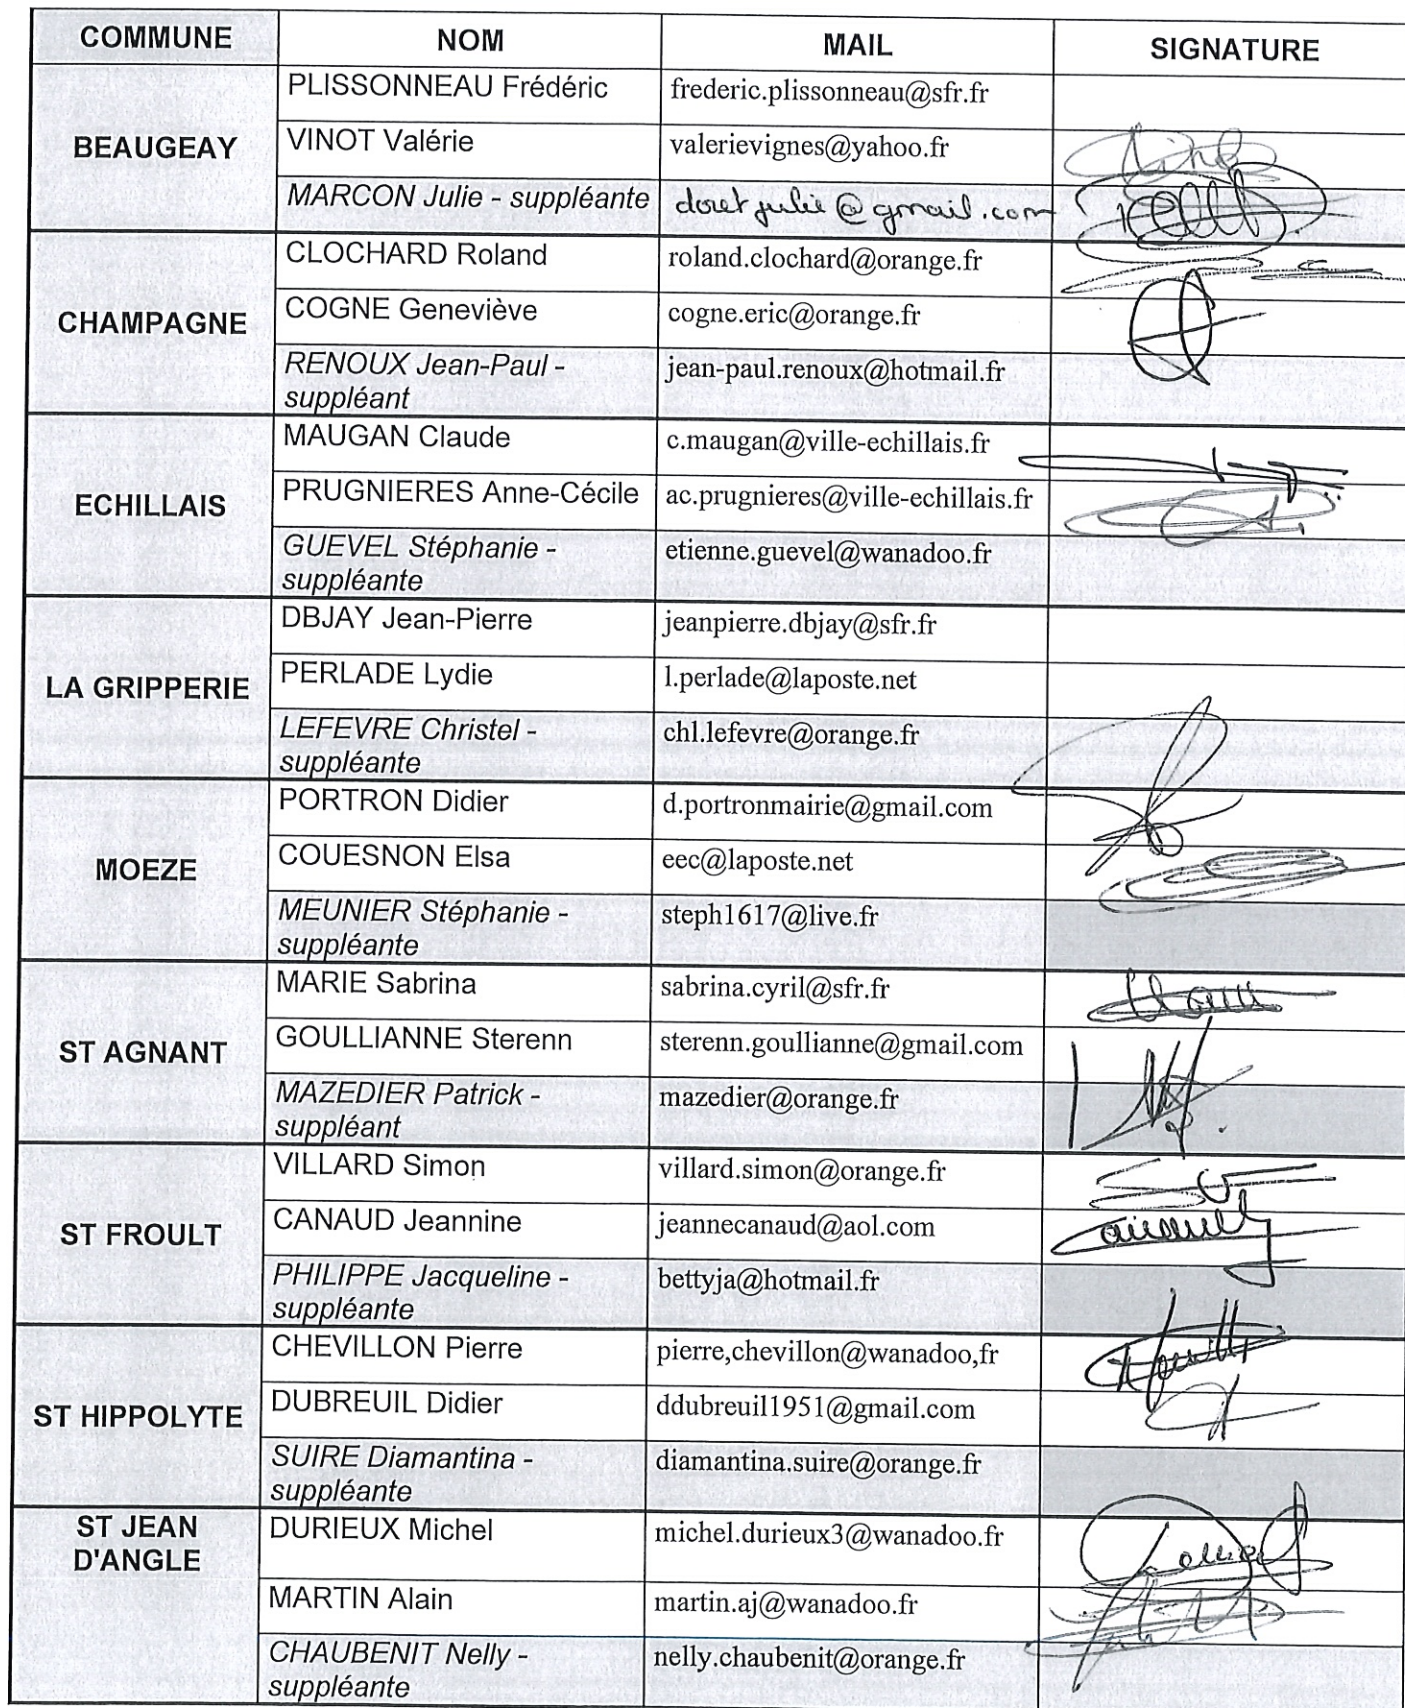 COMMUNE NOM MAIL SIGNATURE
BEAUGEAY
PLISSONNEAU Frédéric frederic.plissonneau@sfr.fr
VINOT Valérie valerievignes@yahoo.fr
MARCON Julie - suppléante doret julie @ gmail.com
CHAMPAGNE
CLOCHARD Roland roland.clochard@orange.fr
COGNE Geneviève cogne.eric@orange.fr
RENOUX Jean-Paul - jean-paul.renoux@hotmail.fr
suppléant
ECHILLAIS
MAUGAN Claude c.maugan@ville-echillais.fr
PRUGNIERES Anne-Cécile ac.prugnieres@ville-echillais.fr
GUEVEL Stéphanie - etienne.guevel@wanadoo.fr
suppléante
LA GRIPPERIE
DBJAY Jean-Pierre jeanpierre.dbjay@sfr.fr
PERLADE Lydie l.perlade@laposte.net
LEFEVRE Christel - chl.lefevre@orange.fr
suppléante
MOEZE
PORTRON Didier d.portronmairie@gmail.com
COUESNON Elsa eec@laposte.net
MEUNIER Stéphanie - steph1617@live.fr
suppléante
ST AGNANT
MARIE Sabrina sabrina.cyril@sfr.fr
GOULLIANNE Sterenn sterenn.goullianne@gmail.com
MAZEDIER Patrick - mazedier@orange.fr
suppléant
ST FROULT
VILLARD Simon villard.simon@orange.fr
CANAUD Jeannine jeannecanaud@aol.com
PHILIPPE Jacqueline - bettyja@hotmail.fr
suppléante
ST HIPPOLYTE
CHEVILLON Pierre pierre,chevillon@wanadoo,fr
DUBREUIL Didier ddubreuil1951@gmail.com
SUIRE Diamantina - diamantina.suire@orange.fr
suppléante
ST JEAN
D'ANGLE
DURIEUX Michel michel.durieux3@wanadoo.fr
MARTIN Alain martin.aj@wanadoo.fr
CHAUBENIT Nelly - nelly.chaubenit@orange.fr
suppléante